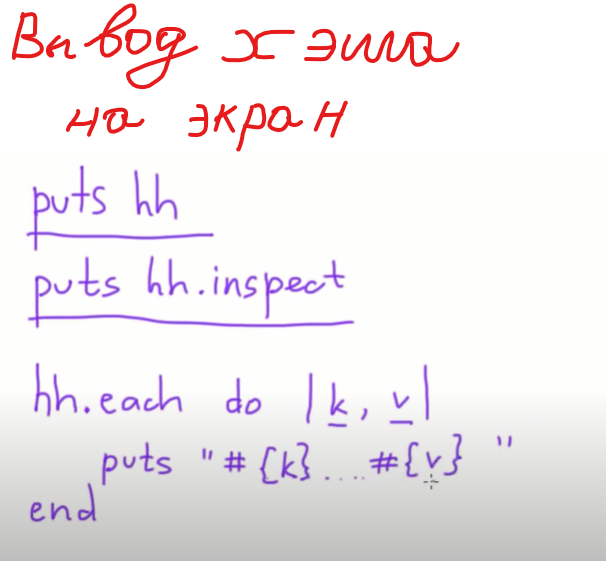 Вывод хэша
на экран
puts hh
puts hh.inspect
hh.each do |k, v|
puts "#{k}.....#{v} "
end